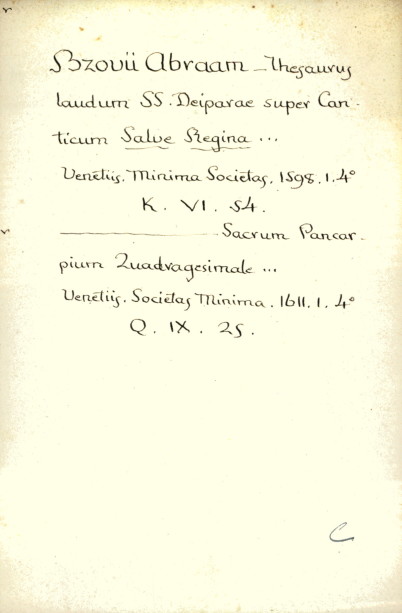 Bzovii Abraam - Thesaurus
laudum SS. Deiparae super Can-
ticum Salve Regina ...
Venetiis. Minima Societas. 1598. 1. 4°
K. VI. 54.
——— Sacrum Pancar-
pium Quadragesimale ...
Venetiis. Societas Minima. 1611. 1. 4°
Q. IX. 25.
C